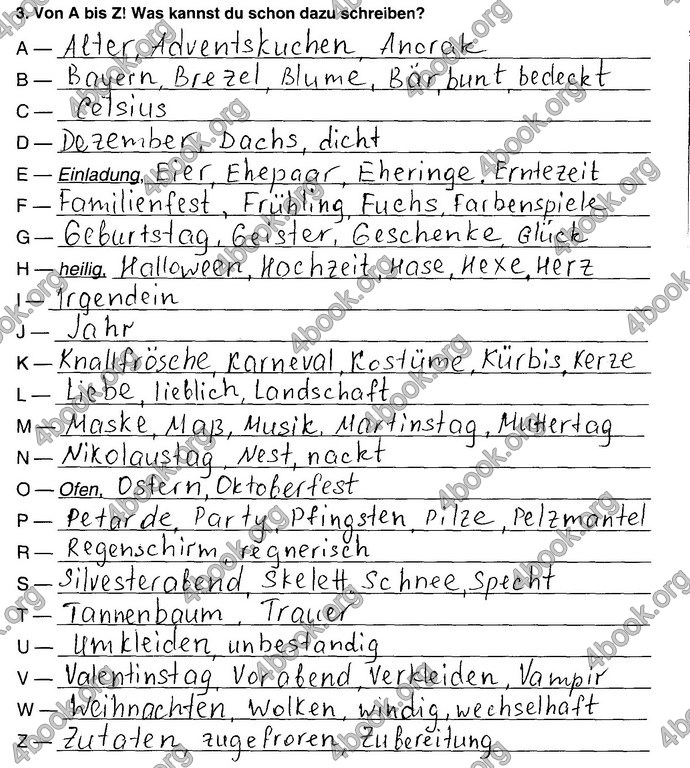 3. Von A bis Z! Was kannst du schon dazu schreiben?
A — Alter, Adventskuchen, Anorak
B — Bayern, Brezel, Blume, Bär, bunt, bedeckt
C — Celsius
D — Dezember, Dachs, dicht
E — Einladung, Eier, Ehepaar, Eheringe, Erntezeit
F — Familienfest, Frühling, Fuchs, Farbenspiele
G — Geburtstag, Geister, Geschenke, Glück
H — heilig, Halloween, Hochzeit, Hase, Hexe, Herz
I — Irgendein
J — Jahr
K — Knallfrösche, Karneval, Kostüme, Kürbis, Kerze
L — Liebe, lieblich, Landschaft
M — Maske, Maß, Musik, Martinstag, Muttertag
N — Nikolaustag, Nest, nackt
O — Ofen, Ostern, Oktoberfest
P — Petarde, Party, Pfingsten, Pilze, Pelzmantel
R — Regenschirm, regnerisch
S — Silvesterabend, Skelett, Schnee, Specht
T — Tannenbaum, Trauer
U — Umkleiden, unbestandig
V — Valentinstag, Vorabend, Verkleiden, Vampir
W — Weihnachten, Wolken, windig, wechselhaft
Z — Zutaten, zugefroren, Zubereitung
4book.org